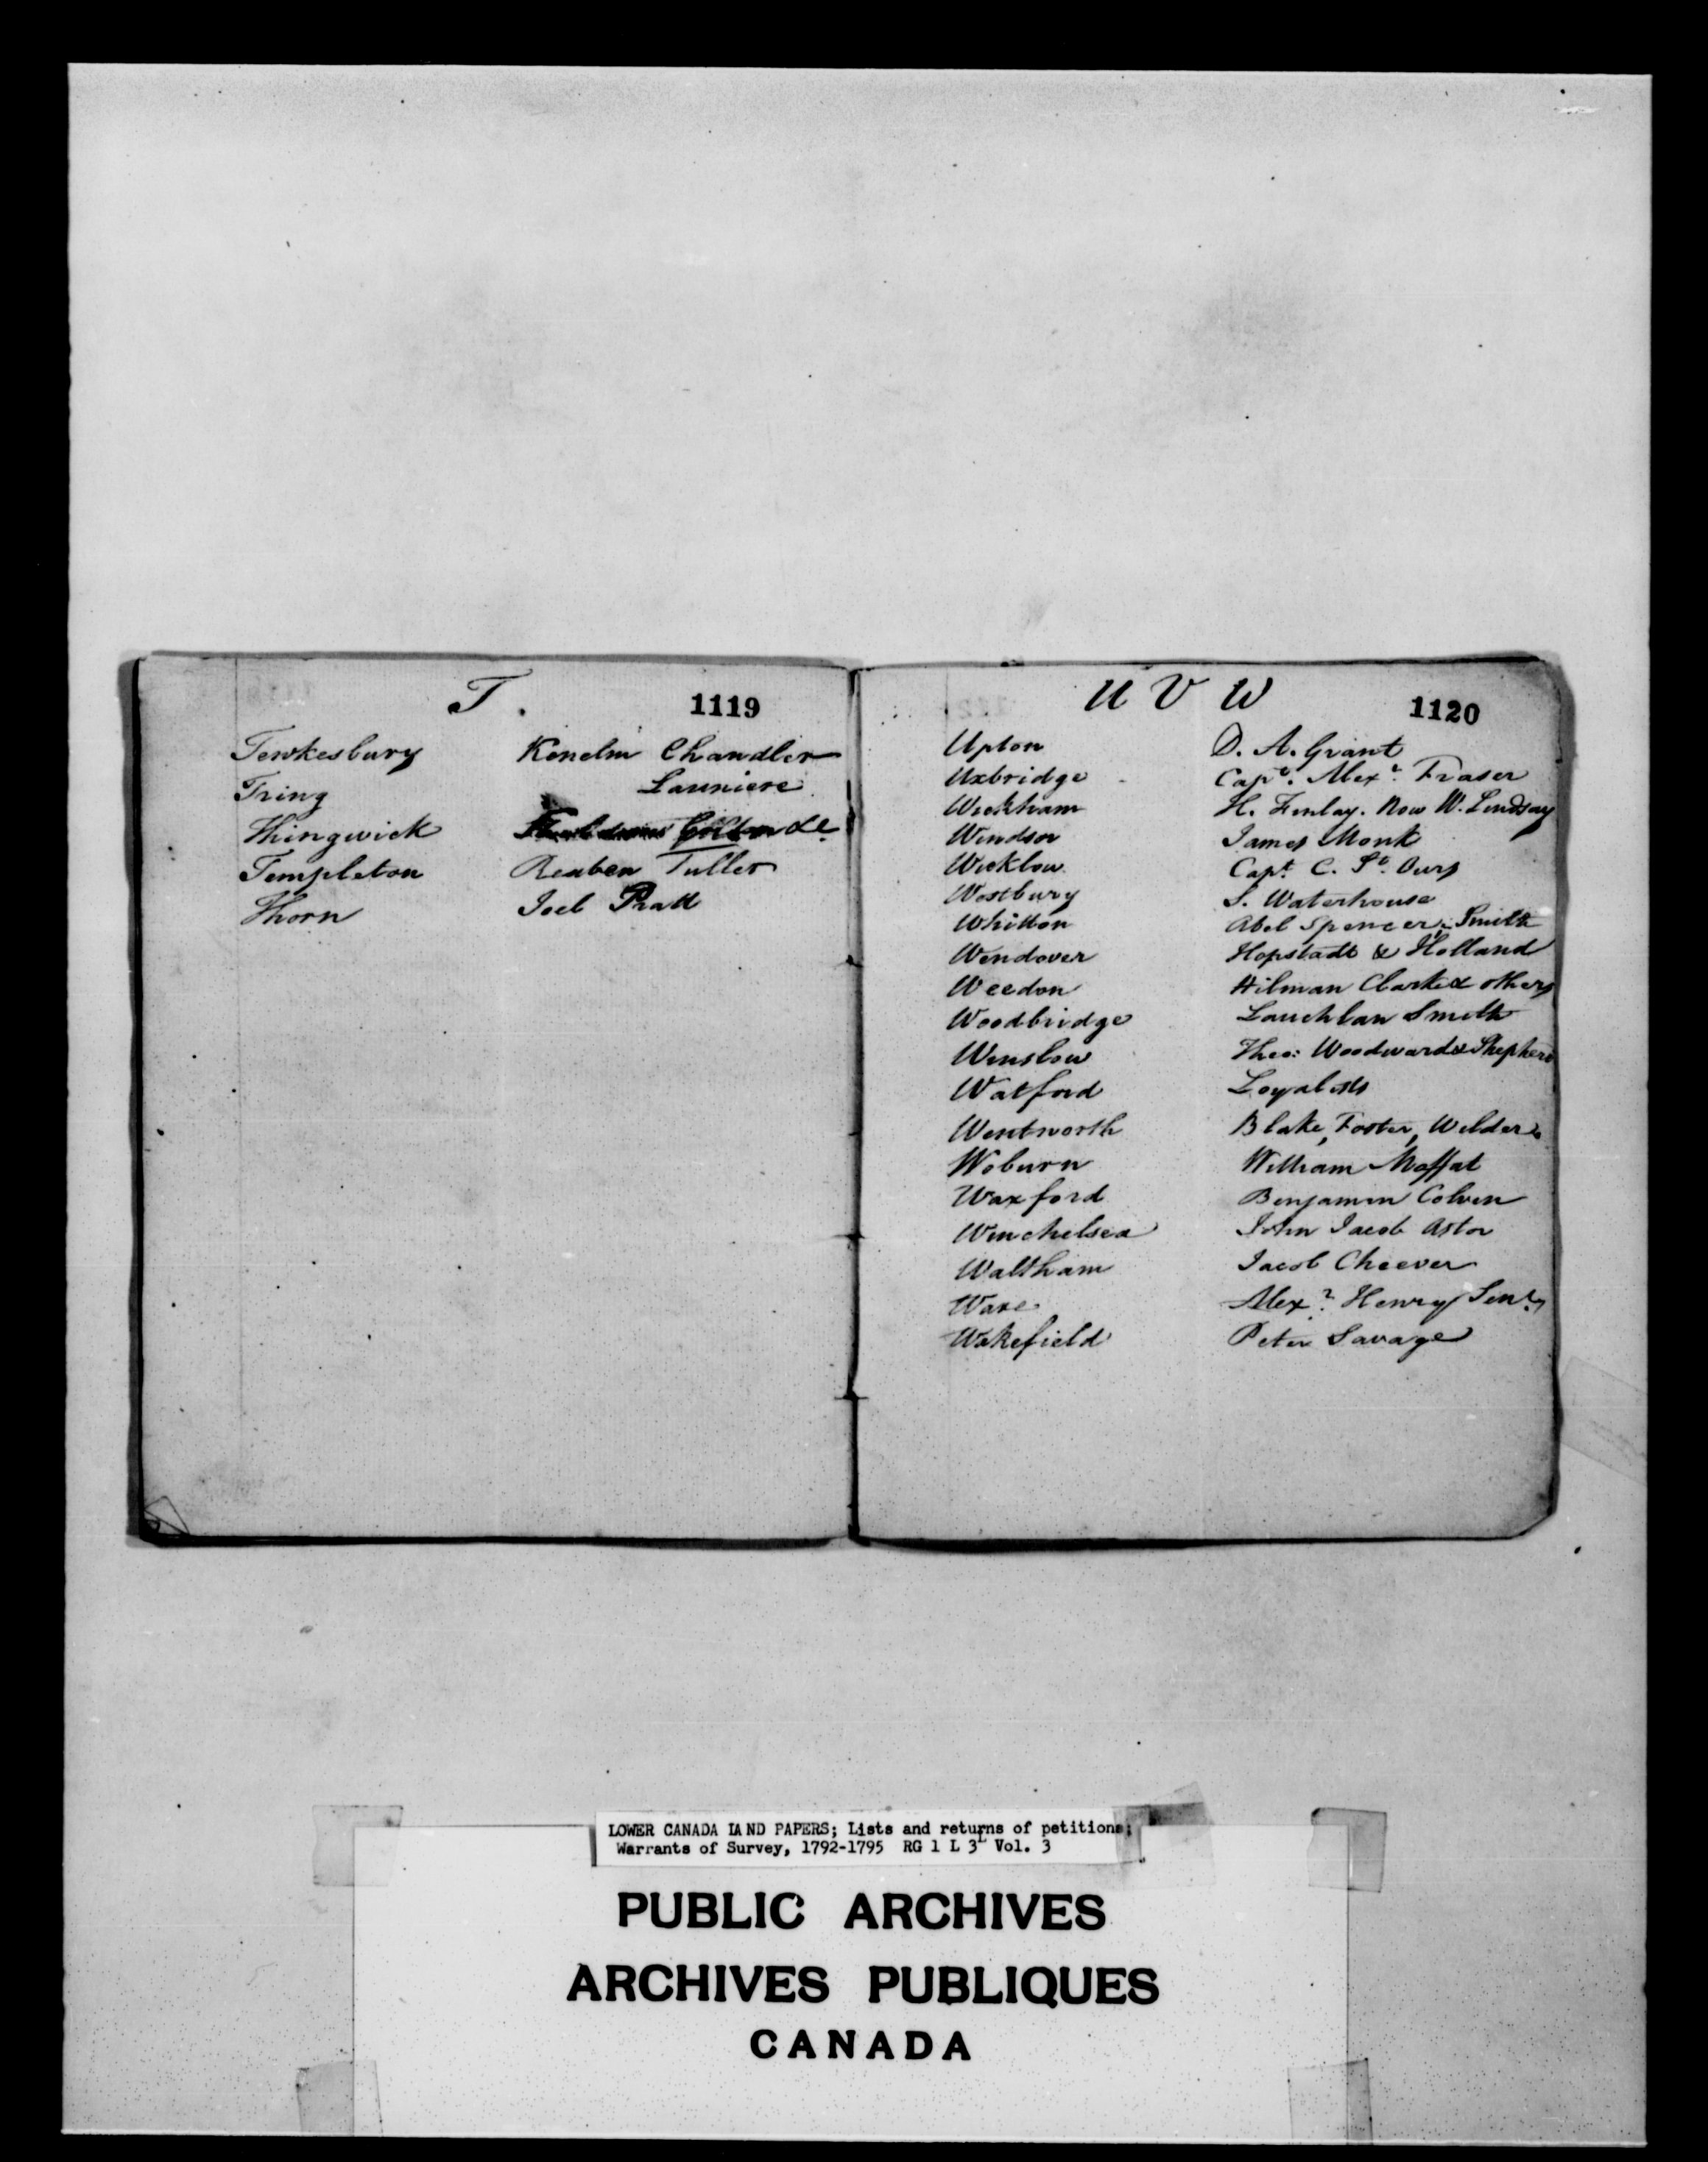 T. 1119
Tewkesbury Kenelm Chandler
Tring Launiere
Thingwick &c.
Templeton Reuben Tuller
Thorn Joel Pratt
U V W 1120
Upton D. A. Grant
Uxbridge Capt. Alexr. Fraser
Wickham H. Finlay. Now W. Lindsay
Windsor James Monk
Wicklow Capt. C. St. Ours
Westbury S. Waterhouse
Whitton Abel Spencer, Smith
Wendover Hopstadt & Holland
Weedon Hilman Clarke & others
Woodbridge Lauchlan Smith
Winslow Theo: Woodward & Shepherd
Watford Loyalists
Wentworth Blake, Foster, Wilder
Woburn William Moffat
Waxford Benjamin Colvin
Winchelsea John Jacob Astor
Waltham Jacob Cheever
Ware Alexr. Henry Senr.
Wakefield Peter Savage
LOWER CANADA LAND PAPERS; Lists and returns of petitions;
Warrants of Survey, 1792-1795 RG 1 L 3L Vol. 3
PUBLIC ARCHIVES
ARCHIVES PUBLIQUES
CANADA